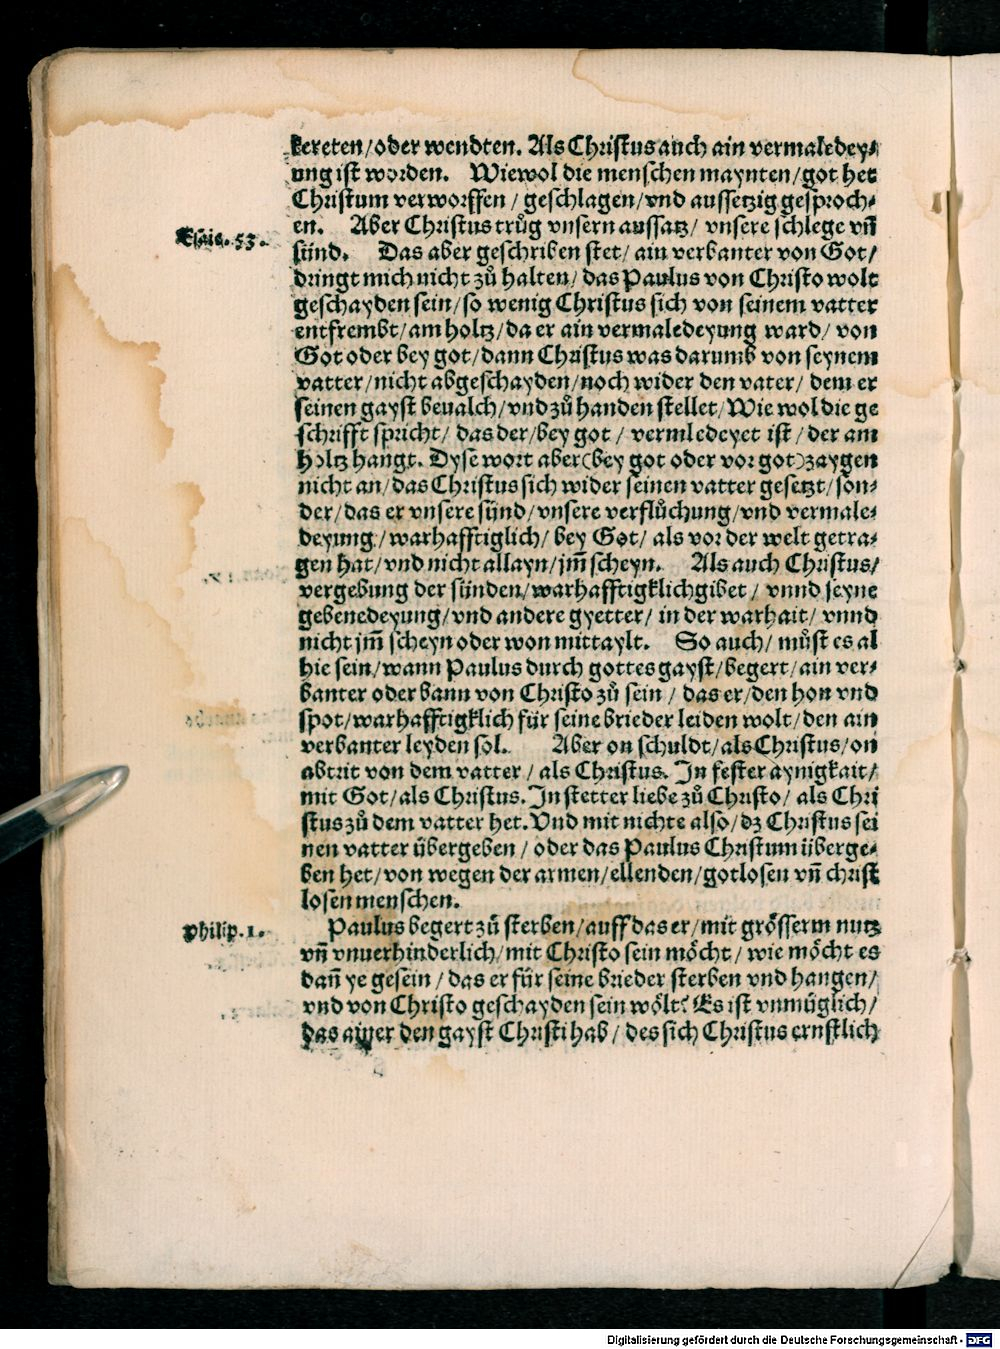 kereten/oder wendten. Als Christus auch ain vermaledey⸗
ung ist worden. Wiewol die menschen maynten/got het
Christum verworffen / geschlagen/vnd aussetzig gesproch⸗
en. Aber Christus trůg vnsern aussatz/ vnsere schlege vñ
Esaie. 53.
sünd. Das aber geschriben stet/ ain verbanter von Got/
dringt mich nicht zů halten/ das Paulus von Christo wolt
geschayden sein/so wenig Christus sich von seinem vatter
entfrembt/am holtz/da er ain vermaledeyung ward/ von
Got oder bey got/dann Christus was darumb von seynem
vatter/nicht abgeschayden/noch wider den vater/ dem er
seinen gayst beualch/vnd zů handen stellet/Wie wol die ge
schrifft spricht/ das der/bey got / vermledeyet ist / der am
holtz hangt. Dyse wort aber(bey got oder vor got)zaygen
nicht an/das Christus sich wider seinen vatter gesetzt/ son⸗
der/das er vnsere sünd/vnsere verflůchung/vnd vermale⸗
deyung/warhafftiglich/ bey Got/ als vor der welt getra⸗
gen hat/vnd nicht allayn/jm̄ scheyn. Als auch Christus/
vergebung der sünden/warhafftigklichgibet / vnnd seyne
gebenedeyung/vnd andere gyetter/ in der warhait/ vnnd
nicht jm̄ scheyn oder won mittaylt. So auch/ můst es al
hie sein/wann Paulus durch gottes gayst/begert/ain ver⸗
banter oder bann von Christo zů sein / das er/den hon vnd
spot/warhafftigklich für seine brieder leiden wolt/den ain
verbanter leyden sol. Aber on schuldt/als Christus/on
abtrit von dem vatter / als Christus. In fester aynigkait/
mit Got/als Christus. In stetter liebe zů Christo/ als Chri
stus zů dem vatter het. Vnd mit nichte also/dz Christus sei
nen vatter übergeben / oder das Paulus Christum überge⸗
ben het/von wegen der armen/ellenden/gotlosen vñ christ
losen menschen.
Philip. 1.
Paulus begert zů sterben/auff das er/mit grösserm nutz
vñ vnuerhinderlich/mit Christo sein möcht/ wie möcht es
dañ ye gesein / das er für seine brieder sterben vnd hangen/
vnd von Christo geschayden sein wölt? Es ist vnmüglich/
das ainer den gayst Christi hab / des sich Christus ernstlich
Digitalisierung gefördert durch die Deutsche Forschungsgemeinschaft - DFG